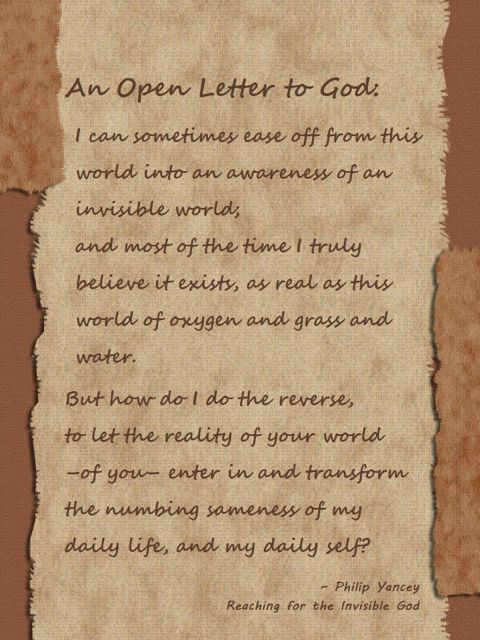 An Open Letter to God:
I can sometimes ease off from this
world into an awareness of an
invisible world;
and most of the time I truly
believe it exists, as real as this
world of oxygen and grass and
water.
But how do I do the reverse,
to let the reality of your world
—of you— enter in and transform
the numbing sameness of my
daily life, and my daily self?
~ Philip Yancey
Reaching for the Invisible God